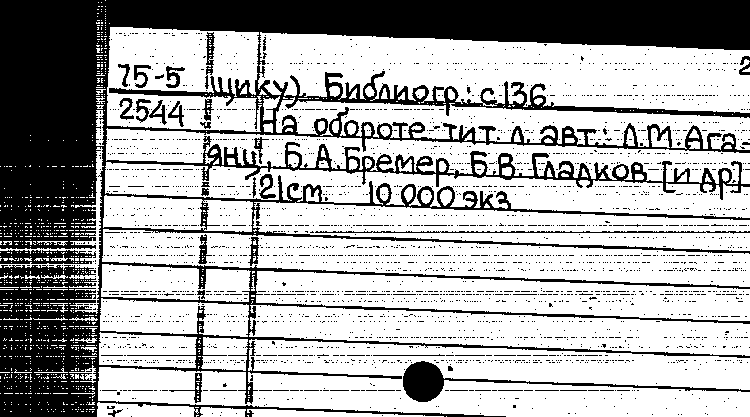 2
75-5 щику). Библиогр.: с.136.
2544 На обороте тит. л. авт.: Л.М.Ага-
янц, Б.А.Бремер, Б.В.Гладков [и др]
21см. 10 000 экз